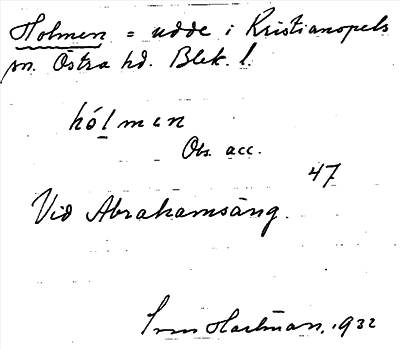 Holmen = udde i Kristianopels
sn. Östra hd. Blek. l.
hólmen
Obs. acc.
47
Vid Abrahamsäng.
Sven Hartman, 1932